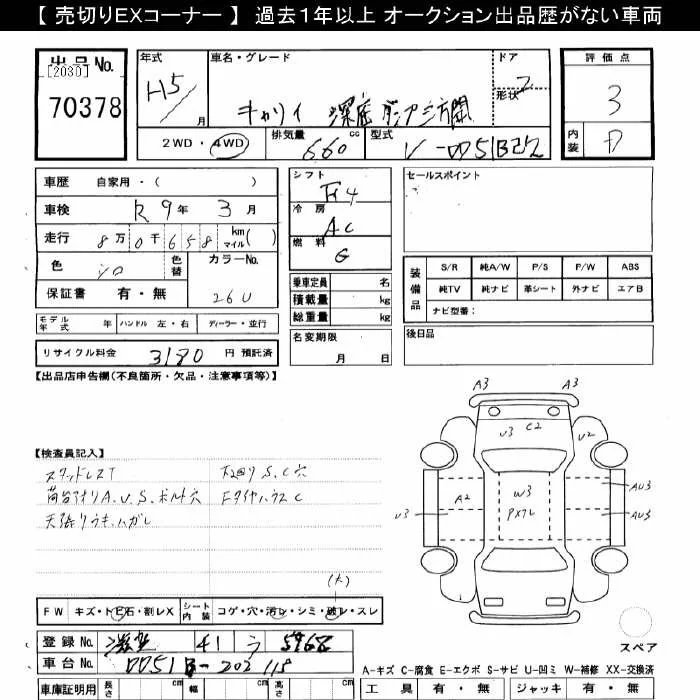 【 売切りEXコーナー 】 過去1年以上 オークション出品歴がない車両
出品 No.
[2030]
70378
年式
H5
月
車名・グレード
キャリイ 深底ダンプ三方開
ドア
2
形状
2WD・4WD
排気量 cc
660
型式
V-DD51B改
評価点
3
内装
D
車歴 自家用・( )
車検 R9年 3月
走行 8万0千658 km マイル( )
色 シロ
色替
カラーNo.
26U
保証書 有・無
モデル年式 年 ハンドル 左・右 ディーラー・並行
リサイクル料金 3180 円 預託済
シフト
F4
冷房
AC
燃料
G
乗車定員 名
積載量 kg
総重量 kg
名変期限
月 日
セールスポイント
装備品
S/R 純A/W P/S P/W ABS
純TV 純ナビ 革シート 外ナビ エアB
ナビ型番:
後日品
【出品店申告欄(不良箇所・欠品・注意事項等)】
【検査員記入】
スタッドレスT
下回りS.C穴
荷台アオリA.U.S.ボルト穴
天張りウキ、ハガレ
(大)
FW キズ・トビ石・割レX シート内装 コゲ・穴・汚レ・シミ・破レ・スレ
登録 No. 滋賀 41 う 5968
車台 No. DD51B-202118
車庫証明用 長さ cm 幅 cm 高さ cm
A3 A3
U3 C2 U2
U3 A2 W3 AU3
AU3
スペア
A-キズ C-腐食 E-エクボ S-サビ U-凹ミ W-補修 XX-交換済
工具 有・無 ジャッキ 有・無